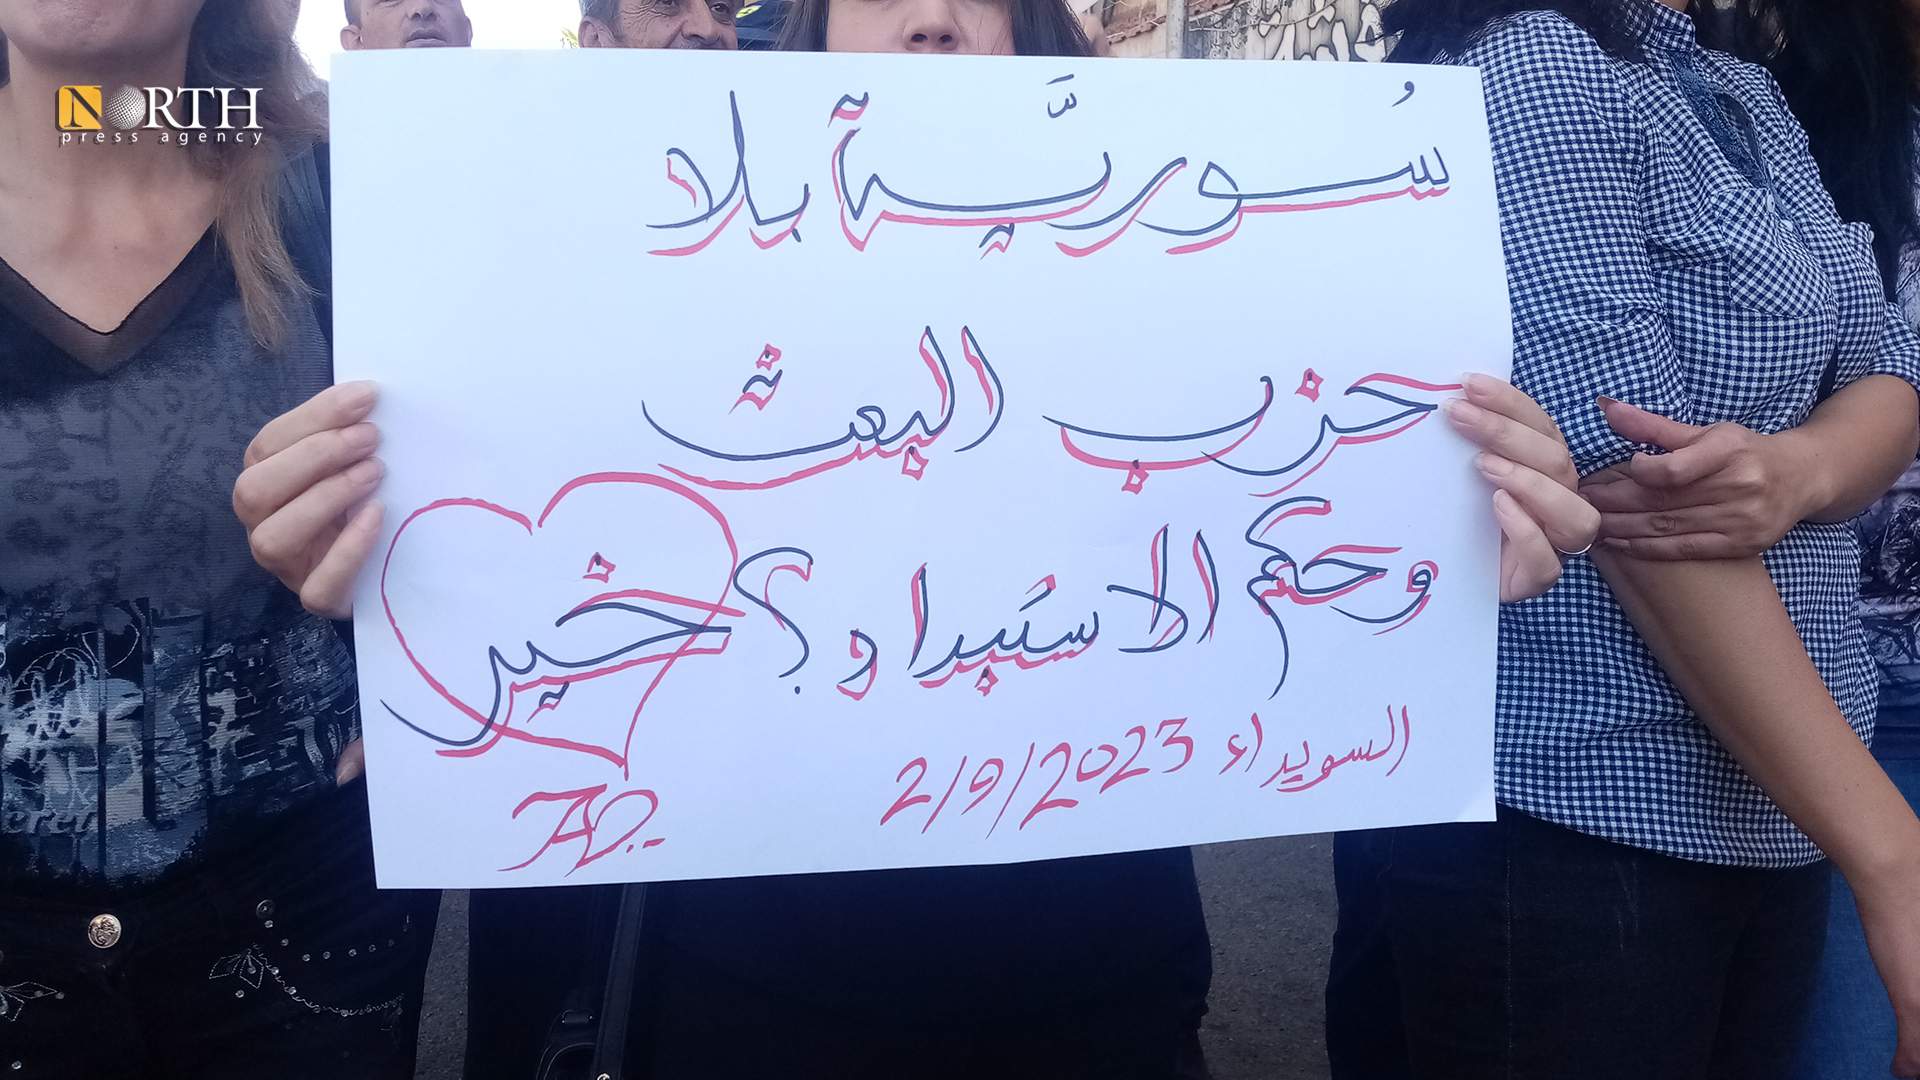 NORTH
press agency
سُوريَّة بلا
حزب البعث
وحكم الاستبداد؟ خير
السويداء 2/9/2023